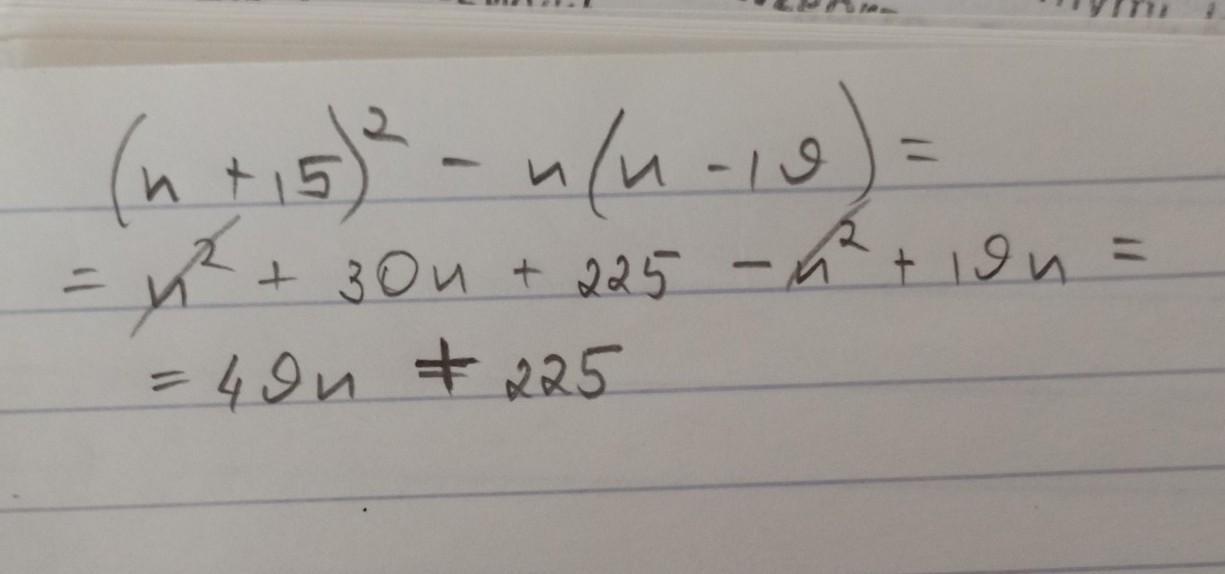 (n + 15)² - n(n - 19) =
= n² + 30n + 225 - n² + 19n =
= 49n + 225